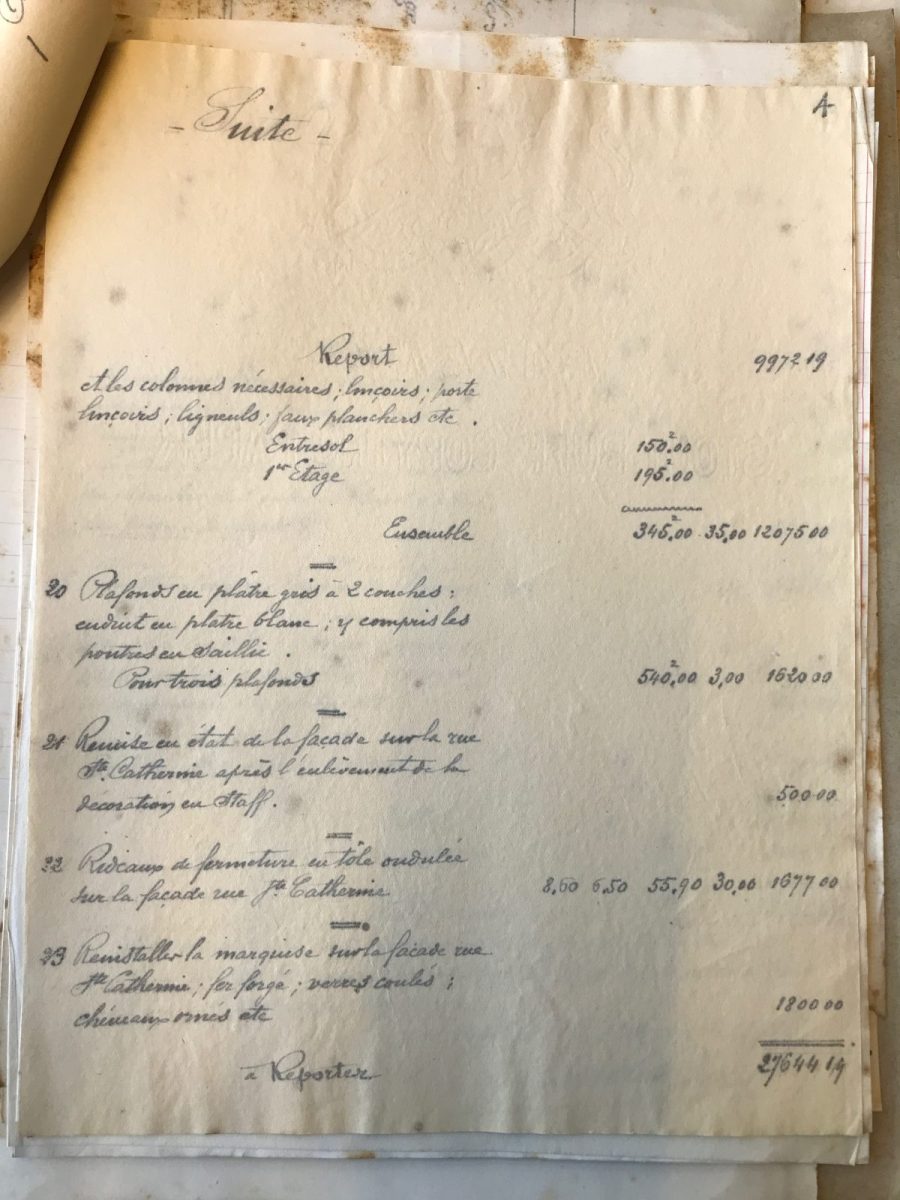 A
- Suite -
Report 9972 19
et les colonnes nécessaires ; linçoirs ; porte
linçoirs ; ligneuls ; faux planchers etc .
Entresol 150²00
1er Etage 195²00
Ensemble 345²00 35,00 12075 00
20 Plafonds en plâtre gris à 2 couches ;
enduit en platre blanc ; y compris les
poutres en saillie .
Pour trois plafonds 540²00 3,00 1620 00
21 Remise en état de la façade sur la rue
Ste Catherine après l'enlèvement de la
décoration en staff. 500 00
22 Rideaux de fermeture en tôle ondulée
sur la façade rue Ste Catherine 8,60 6,50 55,90 30,00 1677 00
23 Réinstaller la marquise sur la façade rue
Ste Catherine ; fer forgé ; verres coulés ;
chéneaux ornés etc 1800 00
27644 19
à Reporter